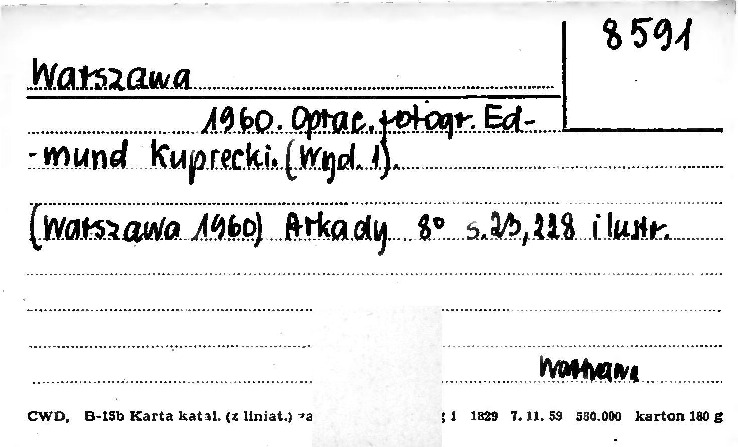 8591
Warszawa
1960. Oprac. fotogr. Ed-
-mund Kuprecki. (Wyd. 1).
(Warszawa 1960) Arkady 8° s. 23, 228 ilustr.
Warszawa
CWD, B-15b Karta katal. (z liniat.) 1 1829 7. 11. 59 580.000 karton 180 g